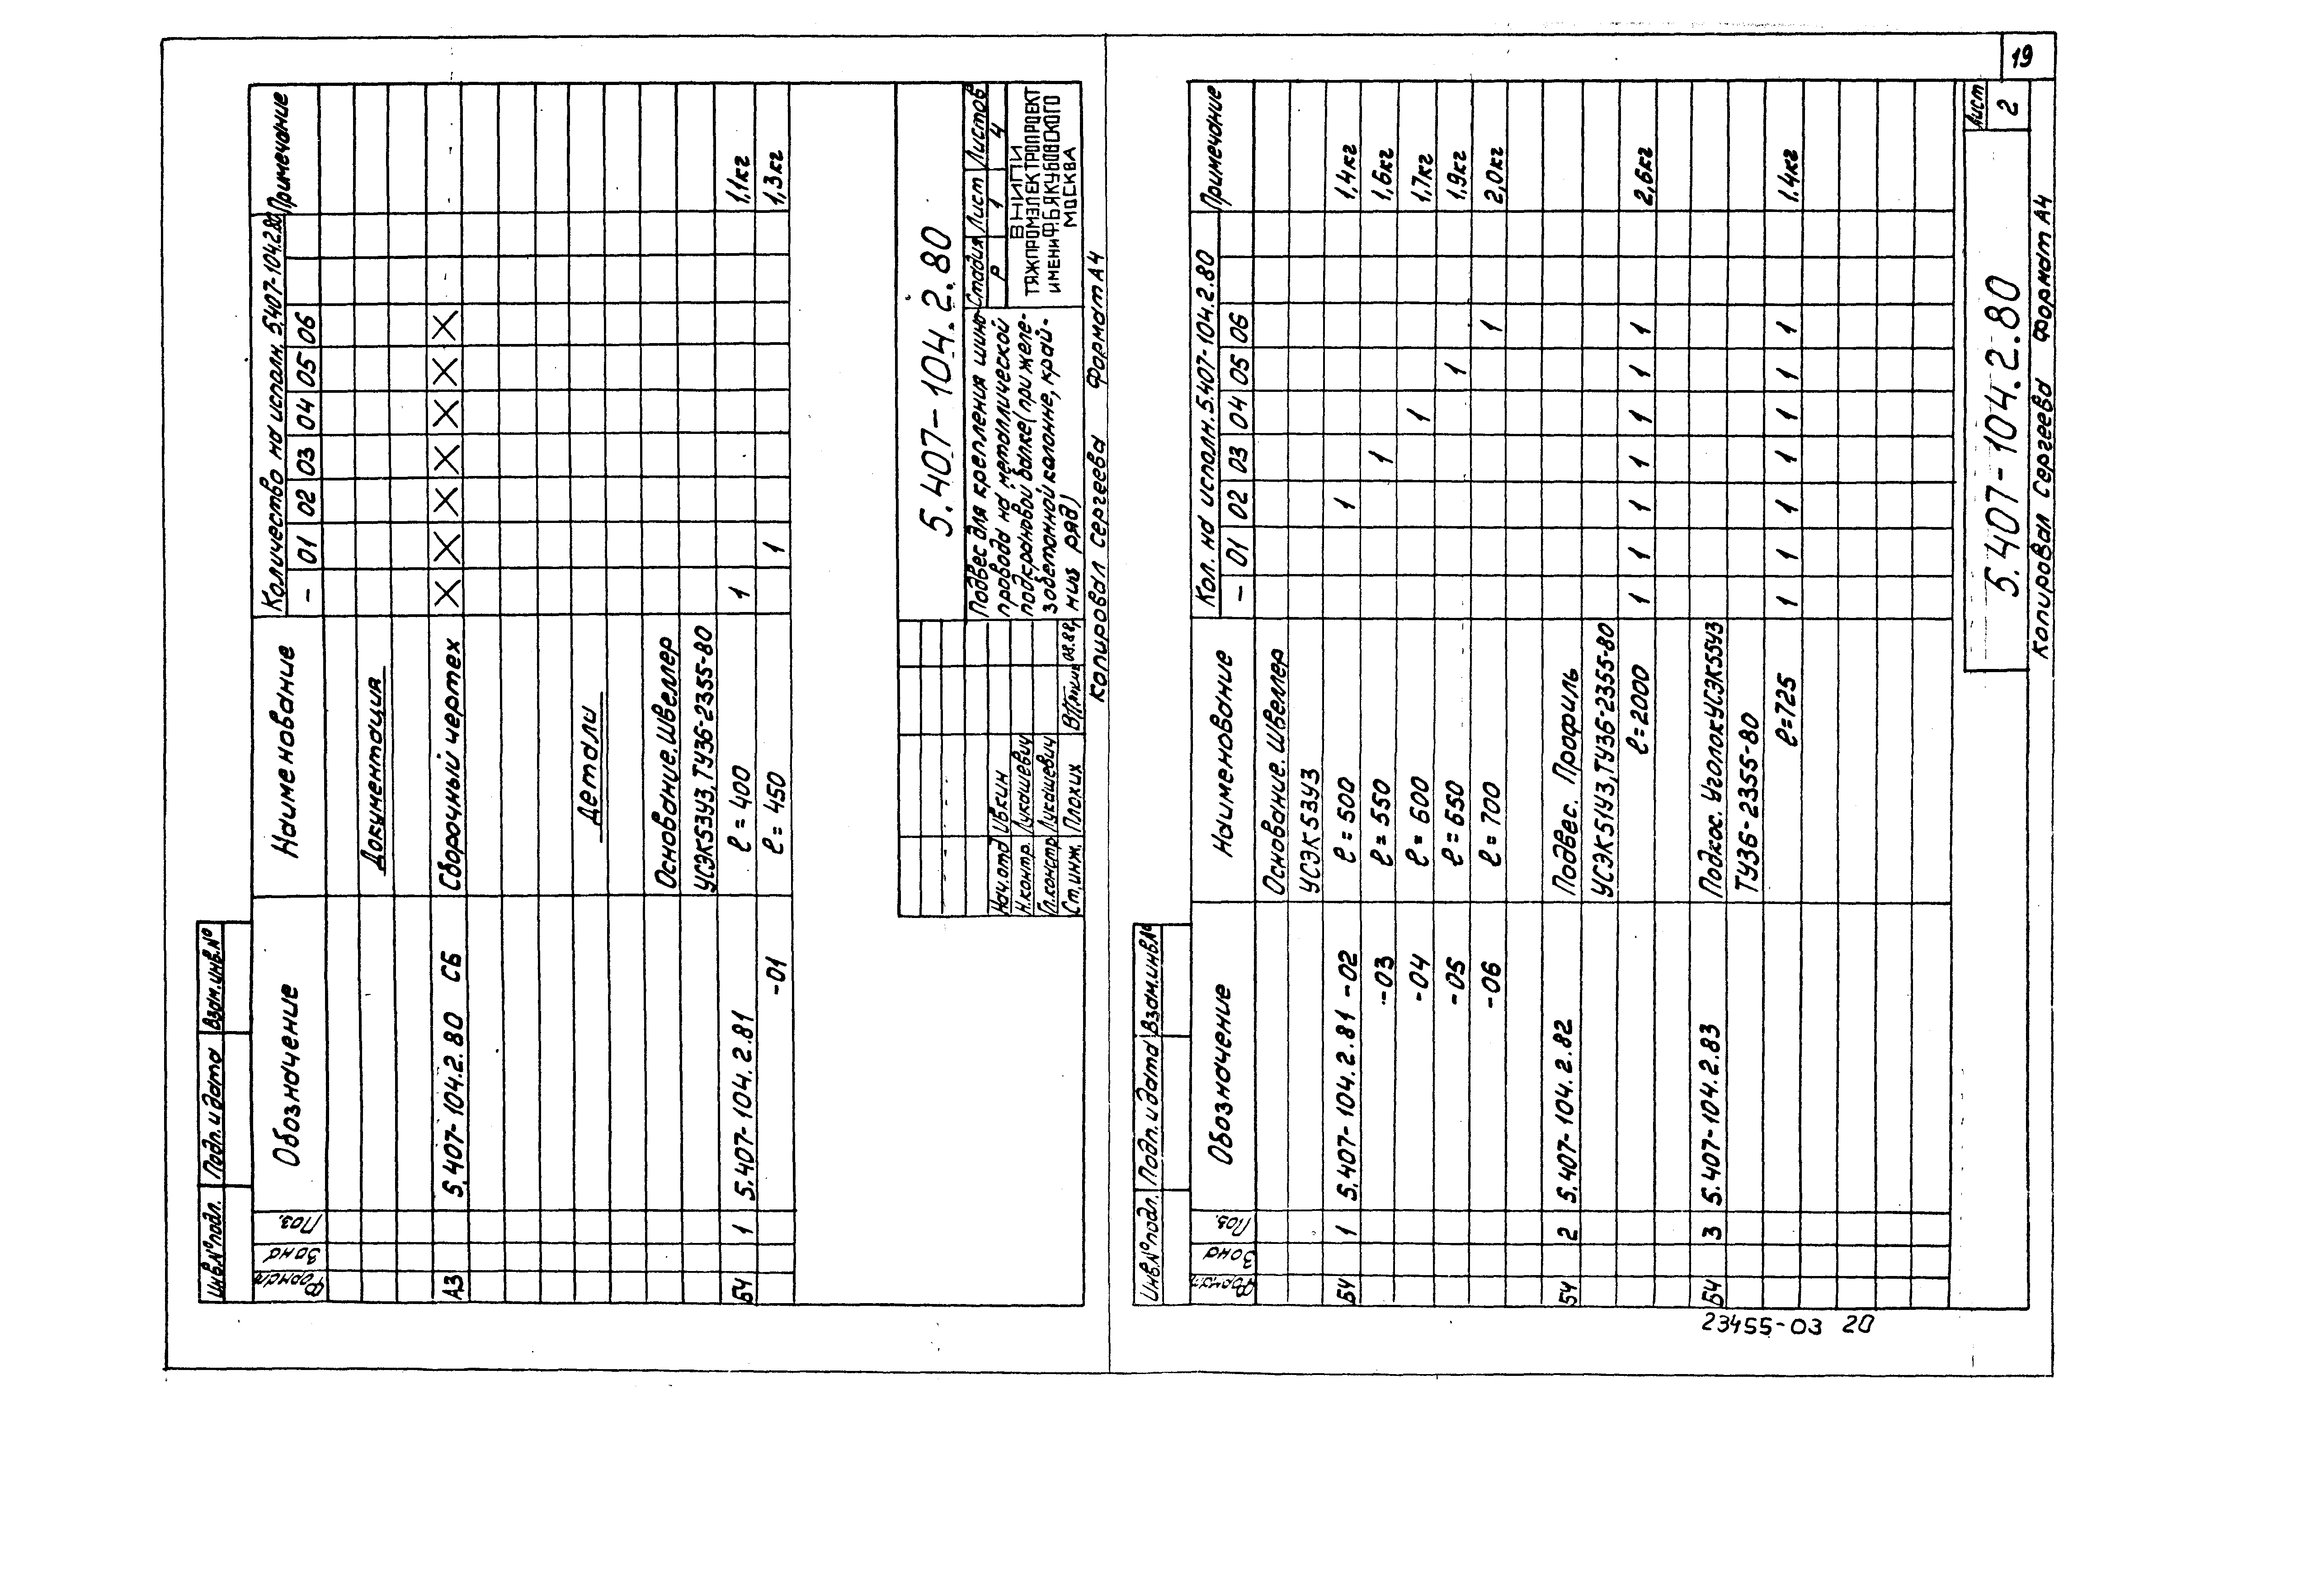 19
Инв.№подл. Подп. и дата Взам.инв.№
Формат Зона Поз. Обозначение Наименование Количество на исполн. 5.407-104.2.80 Примечание
- 01 02 03 04 05 06
Документация
А3 5.407-104.2.80 СБ Сборочный чертеж X X X X X X X
Детали
Основание. Швеллер
УСЭК53У3, ТУ36-2355-80
БЧ 1 5.407-104.2.81 ℓ = 400 1 1,1кг
-01 ℓ = 450 1 1,3кг
5.407-104.2.80
Нач.отд Ивкин
Н.контр. Лукашевич
Гл.констр Лукашевич
Ст.инж. Плохих 08.88
Подвес для крепления шино-
провода на металлической
подкрановой балке (при желе-
зобетонной колонне, край-
ний ряд)
Стадия Лист Листов
Р 1 4
ВНИПИ
ТЯЖПРОМЭЛЕКТРОПРОЕКТ
ИМЕНИ Ф.Б.ЯКУБОВСКОГО
МОСКВА
Копировал Сергеева Формат А4
Инв.№подл. Подп. и дата Взам.инв.№
Формат Зона Поз. Обозначение Наименование Кол. на исполн. 5.407-104.2.80 Примечание
- 01 02 03 04 05 06
Основание. Швеллер
УСЭК53У3
БЧ 1 5.407-104.2.81 -02 ℓ = 500 1 1,4кг
-03 ℓ = 550 1 1,6кг
-04 ℓ = 600 1 1,7кг
-05 ℓ = 650 1 1,9кг
-06 ℓ = 700 1 2,0кг
БЧ 2 5.407-104.2.82 Подвес. Профиль
УСЭК51У3, ТУ36-2355-80
ℓ = 2000 1 1 1 1 1 1 1 2,6кг
БЧ 3 5.407-104.2.83 Подкос. Уголок УСЭК55У3
ТУ36-2355-80
ℓ = 725 1 1 1 1 1 1 1 1,4кг
5.407-104.2.80
Лист
2
Копировал Сергеева Формат А4
23455-03 20